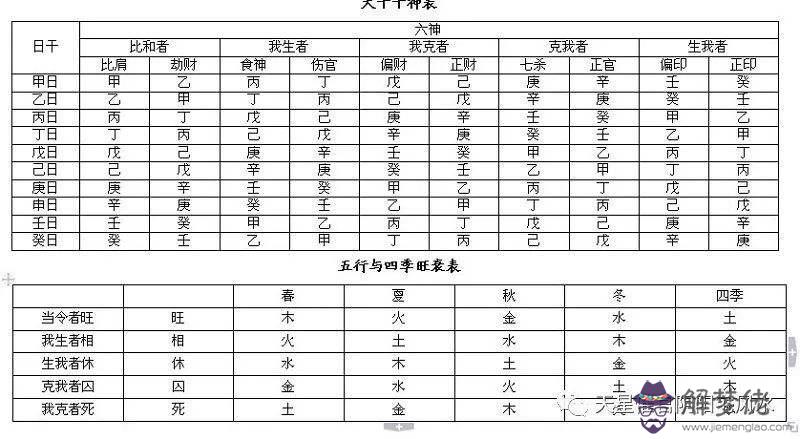 天干十神表
日干 六神
比和者 我生者 我克者 克我者 生我者
比肩 劫财 食神 伤官 偏财 正财 七杀 正官 偏印 正印
甲日 甲 乙 丙 丁 戊 己 庚 辛 壬 癸
乙日 乙 甲 丁 丙 己 戊 辛 庚 癸 壬
丙日 丙 丁 戊 己 庚 辛 壬 癸 甲 乙
丁日 丁 丙 己 戊 辛 庚 癸 壬 乙 甲
戊日 戊 己 庚 辛 壬 癸 甲 乙 丙 丁
己日 己 戊 辛 庚 癸 壬 乙 甲 丁 丙
庚日 庚 辛 壬 癸 甲 乙 丙 丁 戊 己
申日 辛 庚 癸 壬 乙 甲 丁 丙 己 戊
壬日 壬 癸 甲 乙 丙 丁 戊 己 庚 辛
癸日 癸 壬 乙 甲 丁 丙 己 戊 辛 庚
五行与四季旺衰表
春 夏 秋 冬 四季
当令者旺 旺 木 火 金 水 土
我生者相 相 火 土 水 木 金
生我者休 休 水 木 土 金 火
克我者囚 囚 金 水 火 土 木
我克者死 死 土 金 木
天星
解梦佬
www.jiemenglao.com